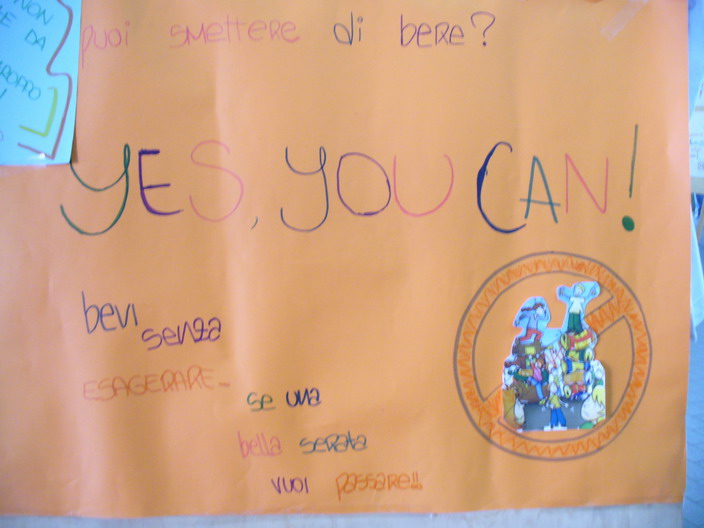 NON
E DA
TROPPO
puoi smettere di bere?
YES, YOU CAN!
bevi
senza
ESAGERARE-
se una
bella serata
vuoi passare!!